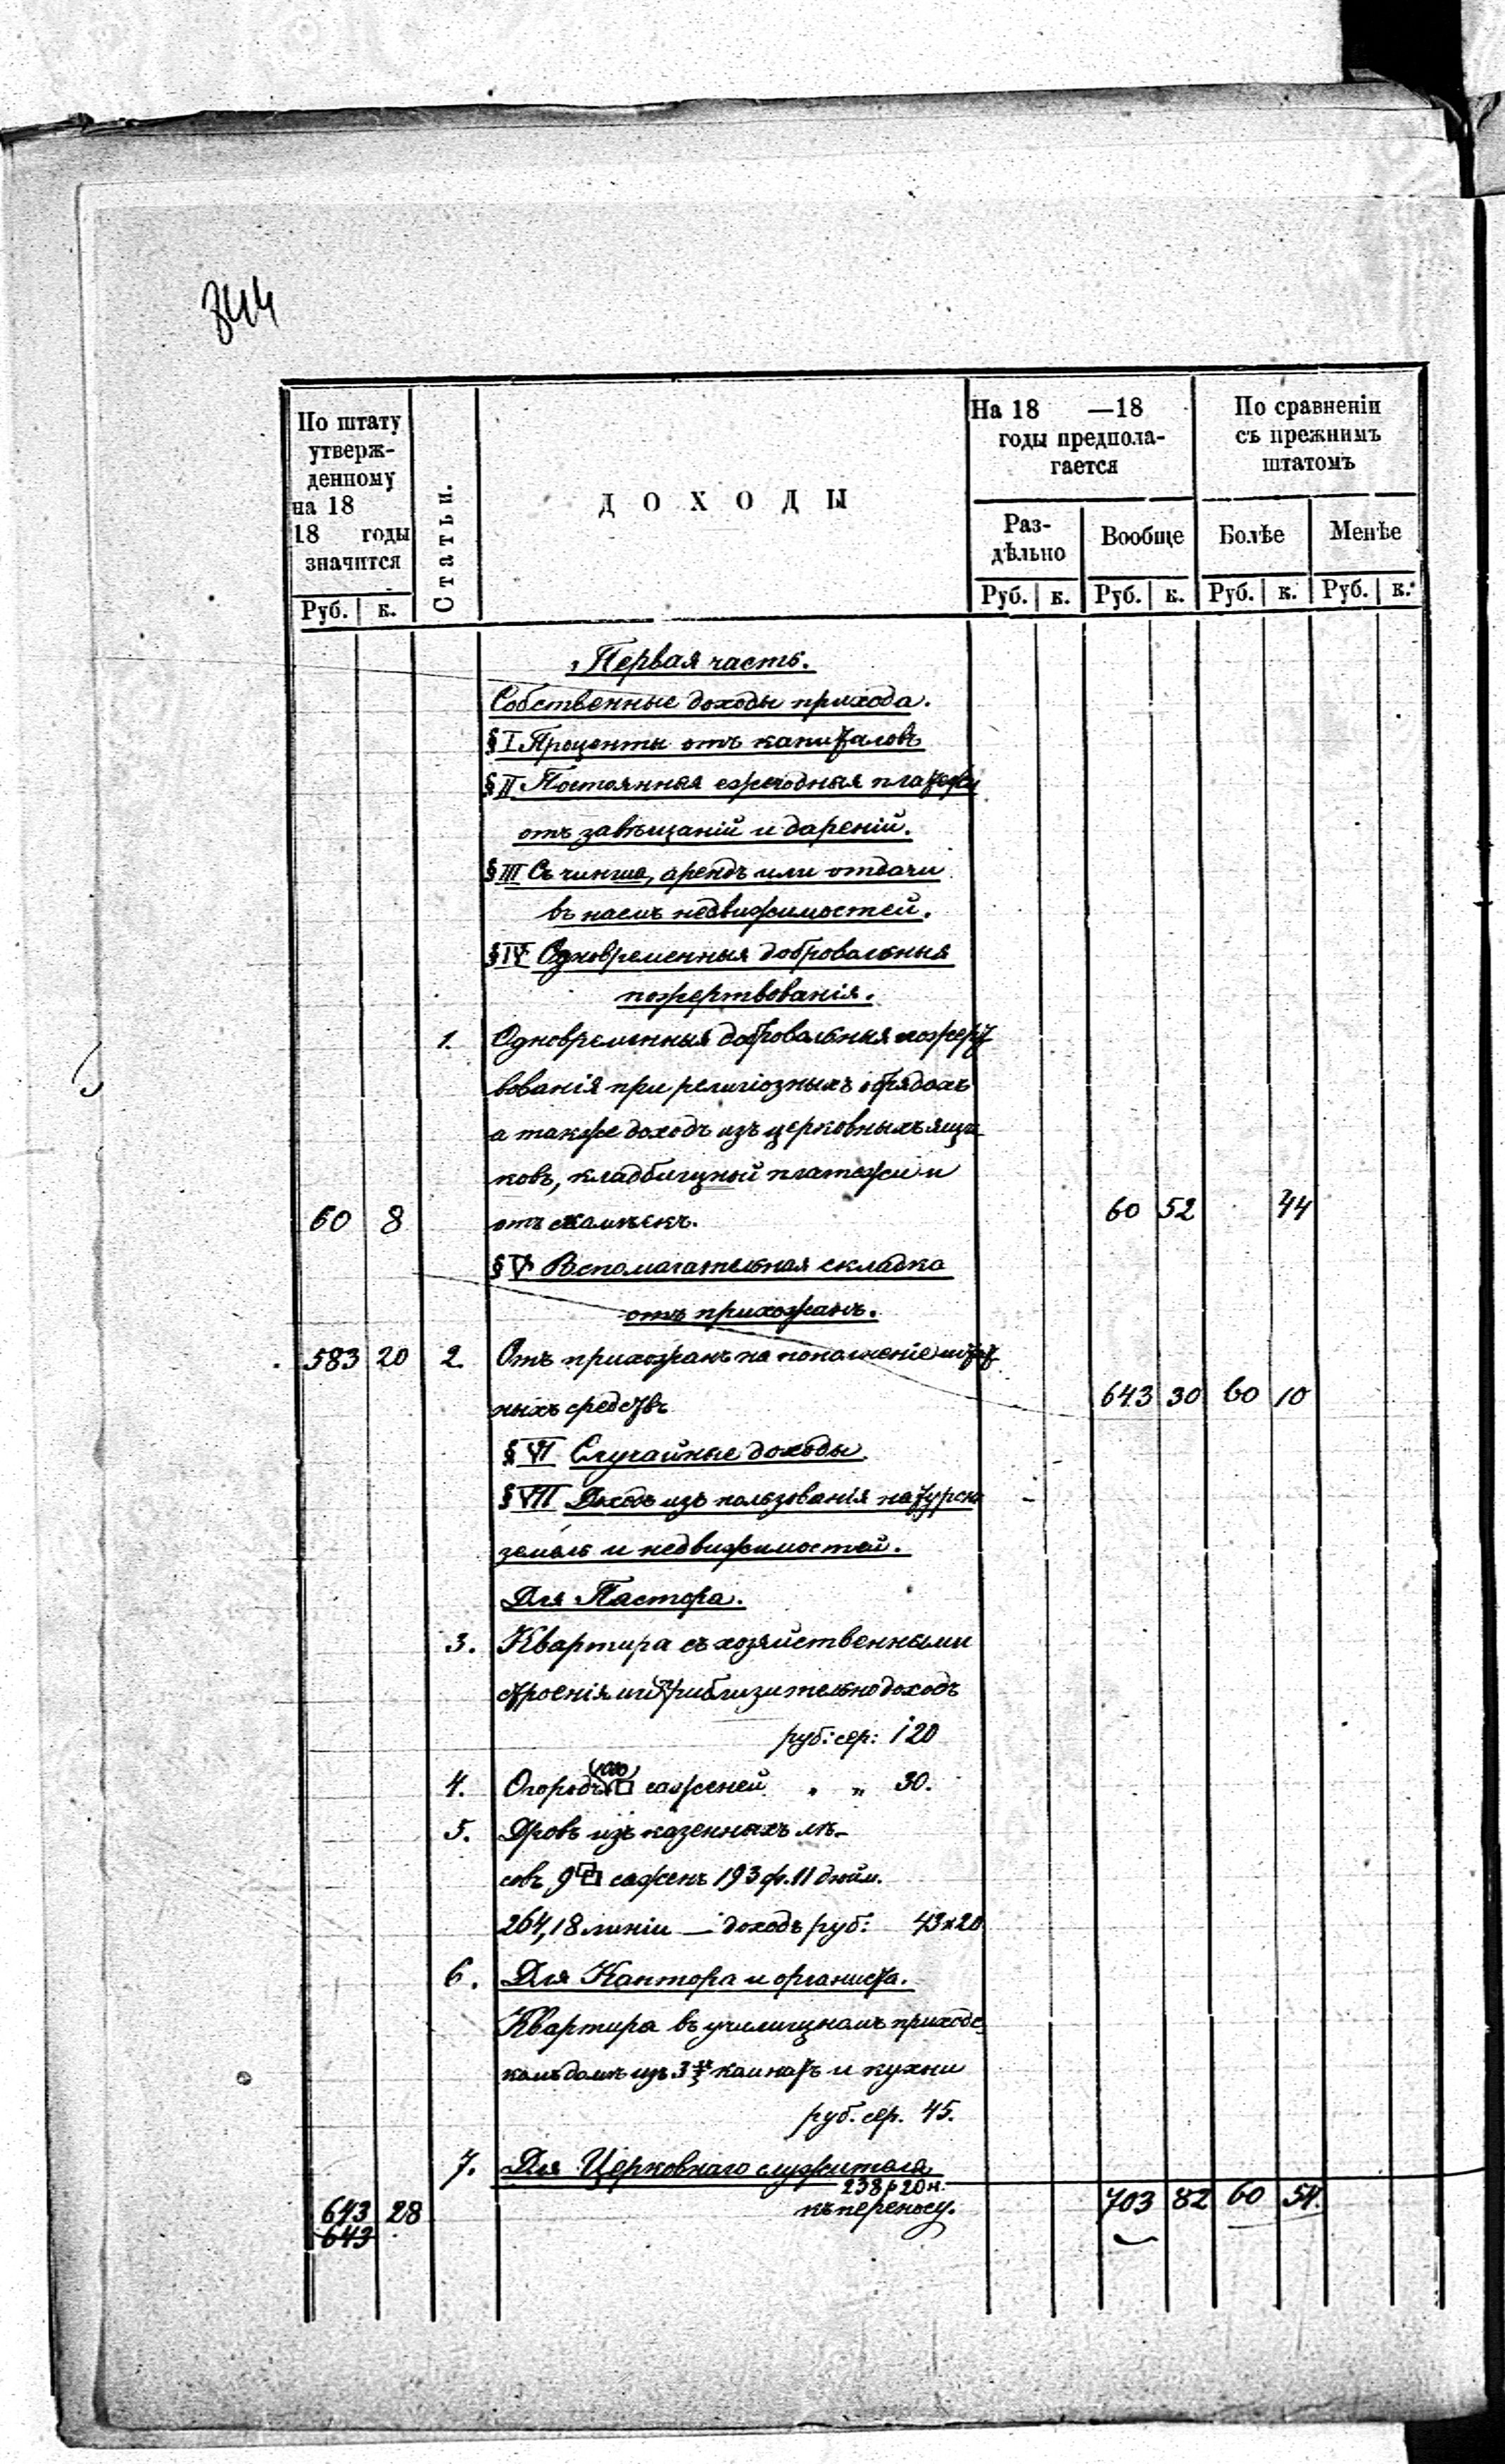 344
По штату
утверж-
денному
на 18
18 годы
значится
Руб. к.
Статьи.
ДОХОДЫ
На 18 —18
годы предпола-
гается
Раз-
дѣльно
Руб. к.
Вообще
Руб. к.
По сравненіи
съ прежнимъ
штатомъ
Болѣе
Руб. к.
Менѣе
Руб. к.
Первая часть.
Собственные доходы прихода.
§ I Проценты отъ капиталовъ
§ II Постоянныя ежегодныя платежи
отъ завѣщаній и дареній.
§ III Съ чинша, арендъ или отдачи
въ наемъ недвижимостей.
§ IV Одновременныя добровальныя
пожертвованія.
1. Одновременныя добровальныя пожерт
вованія при религіозныхъ обрядахъ
а также доходъ изъ церковныхъ ящи
ковъ, кладбищный платежи и
60 8 отъ скамѣекъ. 60 52 44
§ V Вспомагательная складка
отъ прихожанъ.
583 20 2. Отъ прихожанъ на пополненіе штат
ныхъ средствъ 643 30 60 10
§ VI Случайные доходы.
§ VII Доходъ изъ пользованія натурою
земель и недвижимостей.
Для Пастора.
3. Квартира съ хозяйственными
строеніями приблизительно доходъ
руб: сер: 120
4. Огородъ □ саженей „ „ 30.
5. Дровъ изъ казенныхъ лѣ-
совъ 9 саженъ 193 ф. 11 дюйм.
264,18 линіи — доходъ руб: 43 к 20
6. Для Кантора и органиста.
Квартира въ училищномъ приходс
комъ домѣ изъ 3хъ комнатъ и кухни
руб. сер. 45.
7. Для Церковнаго служителя
238 р 20 к.
643 28 къ переносу. 703 82 60 54.
643